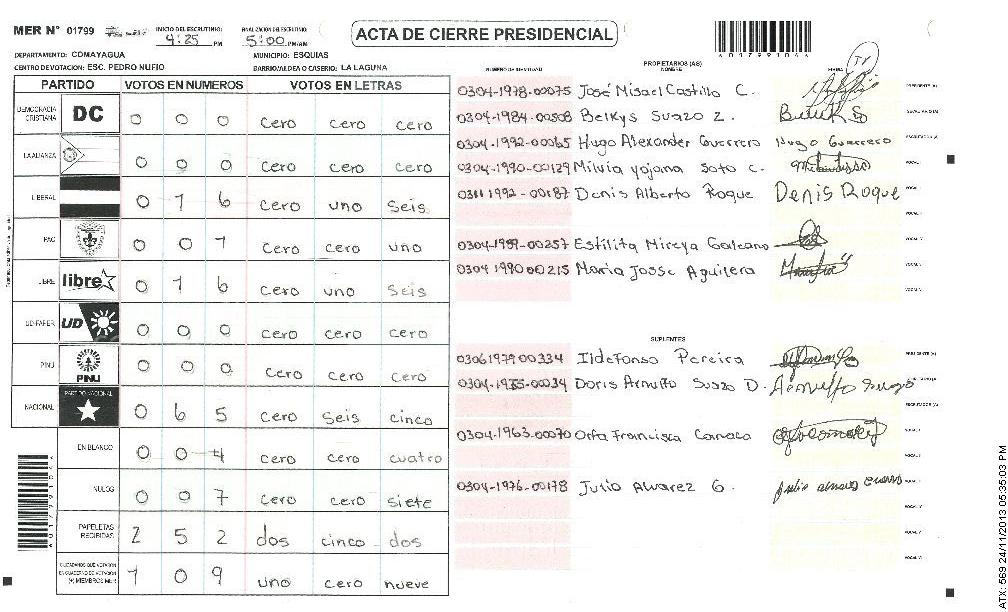 MER N° 01799 INICIO DEL ESCRUTINIO: 4:25 PM FINALIZACION DEL ESCRUTINIO: 5:00 PM/AM ACTA DE CIERRE PRESIDENCIAL
DEPARTAMENTO: COMAYAGUA MUNICIPIO: ESQUIAS
CENTRO DE VOTACION: ESC. PEDRO NUFIO BARRIO/ALDEA O CASERIO: LA LAGUNA
PARTIDO VOTOS EN NUMEROS VOTOS EN LETRAS
DEMOCRACIA CRISTIANA DC 0 0 0 cero cero cero
LA ALIANZA 0 0 0 cero cero cero
LIBERAL 0 1 6 cero uno seis
PAC 0 0 1 cero cero uno
LIBRE libre 0 1 6 cero uno seis
UD-FAPER UD 0 0 0 cero cero cero
PINU PINU 0 0 0 cero cero cero
NACIONAL PARTIDO NACIONAL 0 6 5 cero seis cinco
EN BLANCO 0 0 4 cero cero cuatro
NULOS 0 0 7 cero cero siete
PAPELETAS RECIBIDAS 2 5 2 dos cinco dos
CIUDADANOS QUE VOTARON EN CUADERNO DE VOTACION (+) MIEMBROS MER 1 0 9 uno cero nueve
NUMERO DE IDENTIDAD PROPIETARIOS (AS) NOMBRE FIRMA
0304-1978-00075 José Misael Castillo C. PRESIDENTE (A)
0304-1984-00508 Belkys Suazo Z. SECRETARIO (A)
0304-1992-00065 Hugo Alexander Guerrero Hugo Guerrero ESCRUTADOR (A)
0304-1990-00129 Milvia yojana Soto C. VOCAL I
0311 1992-00187 Denis Alberto Roque Denis Roque
0304-1959-00257 Estilita Mireya Galeano
0304 1990 00215 Maria Josse Aguilera
SUPLENTES
0306 1979 00334 Ildefonso Pereira PRESIDENTE (A)
0304-1935-00034 Doris Arnulfo Suazo D. Arnulfo Suazo
0304-1963-00070 Orfa Francisca Canaca
0304-1976-00178 Julio Alvarez G.
A01799104A
ATX: 569 24/11/2013 05:35:03 PM